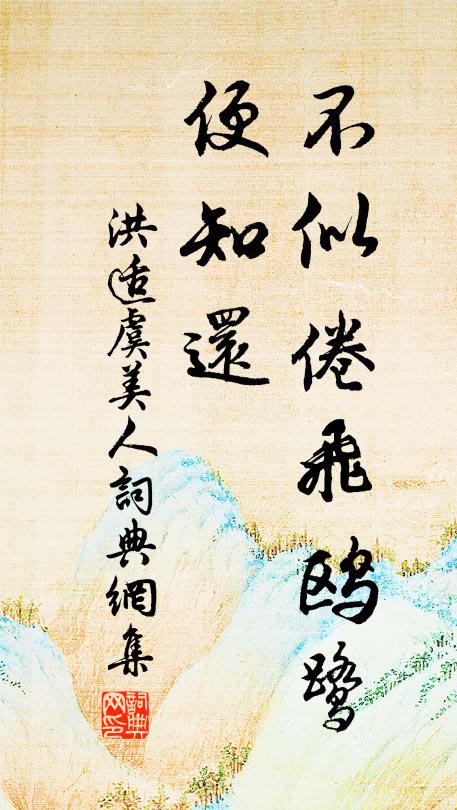 不似倦飛鷗鷺
便知還
洪适虞美人詞典網集
詞典網印